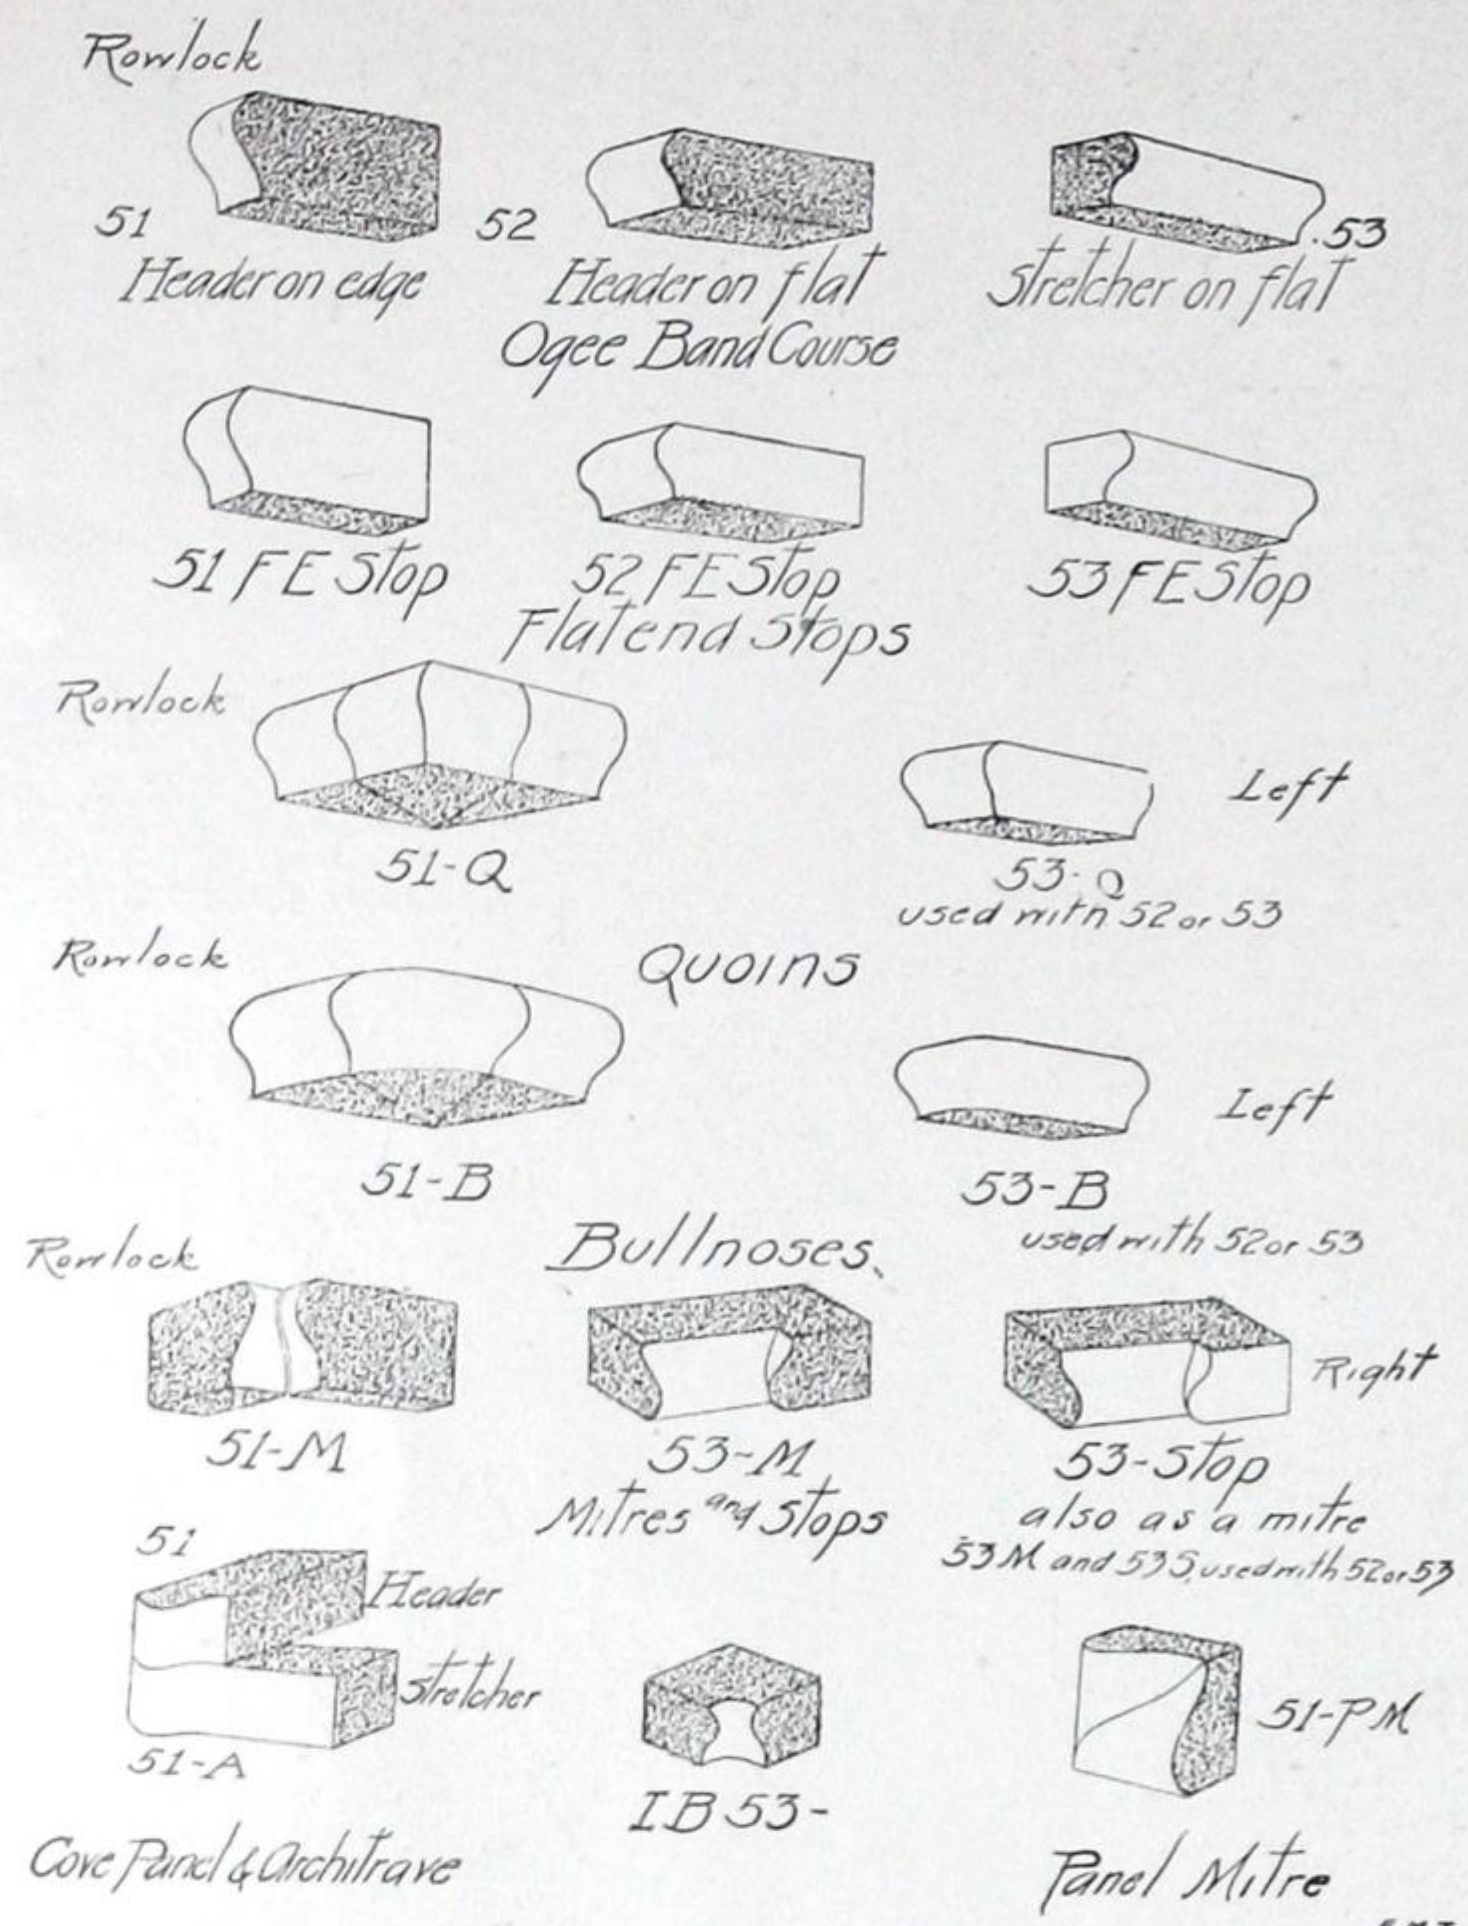 Rowlock
51
52
.53
Header on edge
Header on flat
Stretcher on flat
Ogee Band Course
51 F E Stop
52 FE Stop
53 FE Stop
Flat end Stops
Rowlock
Left
51-Q
53-Q
used with 52 or 53
Rowlock
Quoins
Left
51-B
53-B
used with 52 or 53
Rowlock
Bullnoses
Right
51-M
53-M
53-Stop
Mitres and Stops
also as a mitre
53 M and 53 S, used with 52 or 53
51
Header
Stretcher
51-A
I B 53-
51-P M
Cove Panel & Architrave
Panel Mitre